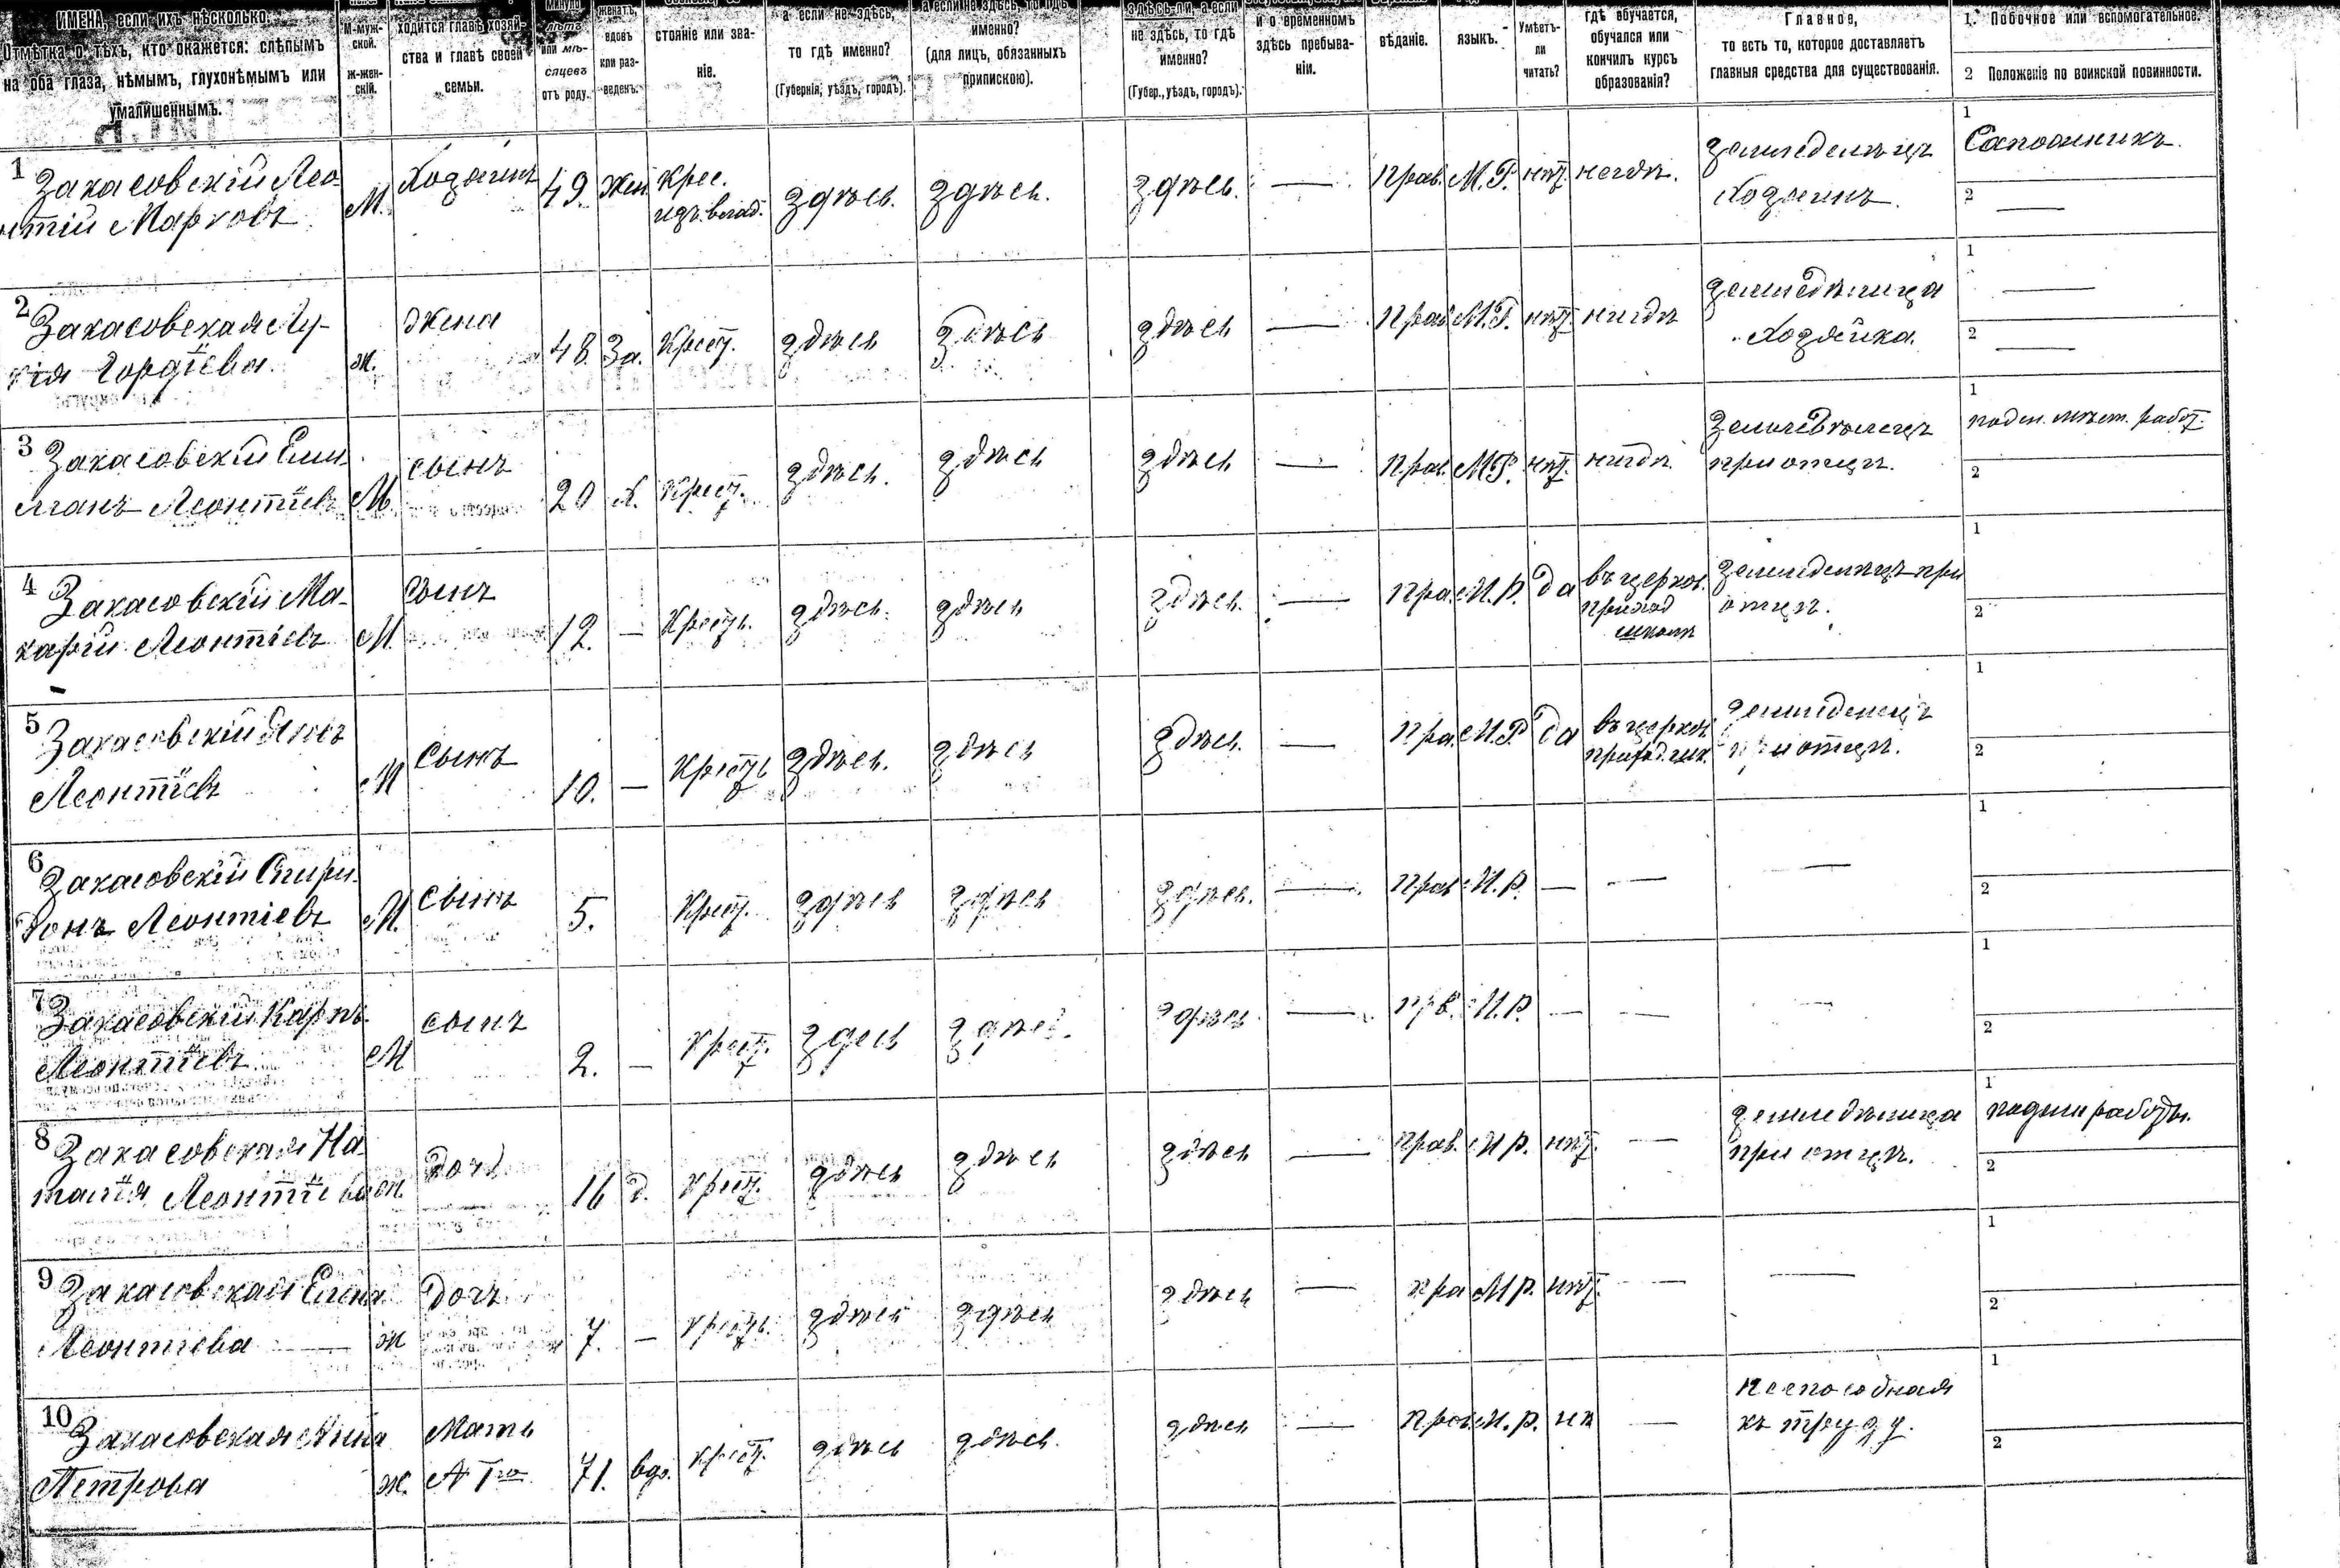 ИМЕНА, если ихъ нѣсколько.
Отмѣтка о тѣхъ, кто окажется: слѣпымъ
на оба глаза, нѣмымъ, глухонѣмымъ или
умалишеннымъ.
М-муж-
ской.
ж-жен-
скій.
ходится главѣ хозяй-
ства и главѣ своей
семьи.
минуло
лѣтъ
или мѣ-
сяцевъ
отъ роду.
женатъ,
вдовъ
или раз-
веденъ.
стояніе или зва-
ніе.
а если не здѣсь,
то гдѣ именно?
(Губернія, уѣздъ, городъ).
а если не здѣсь, то гдѣ
именно?
(для лицъ, обязанныхъ
припискою).
здѣсь-ли, а если
не здѣсь, то гдѣ
именно?
(Губер., уѣздъ, городъ).
и о временномъ
здѣсь пребыва-
ніи.
вѣданіе.
языкъ.
Умѣетъ-
ли
читать?
гдѣ обучается,
обучался или
кончилъ курсъ
образованія?
Главное,
то есть то, которое доставляетъ
главныя средства для существованія.
1. Побочное или вспомогательное.
2 Положеніе по воинской повинности.
1 Закасовскій Лео-
нтій Марковъ М. Хозяинъ 49. Жен. Крес.
изъ. влад. здѣсь. здѣсь. здѣсь. — прав. М. Р. нѣт. негдѣ. земледелецъ
Хозяинъ. 1 Сапожникъ. 2 —
2 Закасовская Лу-
кія Гордіева. ж. Жена 48. За. Крест. здѣсь здѣсь здѣсь — прав М. Р. нѣт. нигдѣ земледѣлица
Хозяйка. 1 — 2 —
3 Закасовскій Еми-
ліанъ Леонтіевъ М. сынъ 20 Х. Крест. здѣсь. здѣсь здѣсь — прав. М. Р. нѣт. нигдѣ. Земледѣлецъ
при отцѣ. 1 поден. мѣст. работ. 2
4 Закасовскій Ма-
карій Леонтіевъ М. сынъ 12. — Крест. здѣсь. здѣсь здѣсь. — пра. М. Р. да въ церков.
приход
школѣ земледелецъ при
отцѣ. 1 2
5 Закасовскій
Леонтіевъ М сынъ 10. — Крест здѣсь. здѣсь здѣсь. — пра. М. Р да въ церков.
приход. шк. земледелецъ
при отцѣ. 1 2
6 Закасовскій Спири-
донъ Леонтіевъ М. сынъ 5. Крест. здѣсь здѣсь здѣсь. — прав М. Р. — — — 1 2
7 Закасовскій Карпъ
Леонтіевъ М сынъ 2. — Крест. здесь здѣсь. здѣсь — М. Р. — — — 1 2
8 Закасовская На-
талія Леонтіева ж. Дочь 16 д. крест. здѣсь здѣсь здѣсь — прав. М. Р. нѣт. — земледѣлица
при отцѣ. 1 2
9 Закасовская Елена
Леонтіева ж Дочъ 7. — крест. здѣсь здѣсь здѣсь — пра М Р. нѣт. — — 1 2
10 Закасовская Анна
Петрова ж. Мать
№ 1го 71. вдо. крест. здѣсь здѣсь. здѣсь — прав. М. Р. нѣ — Неспособная
къ труду. 1 2